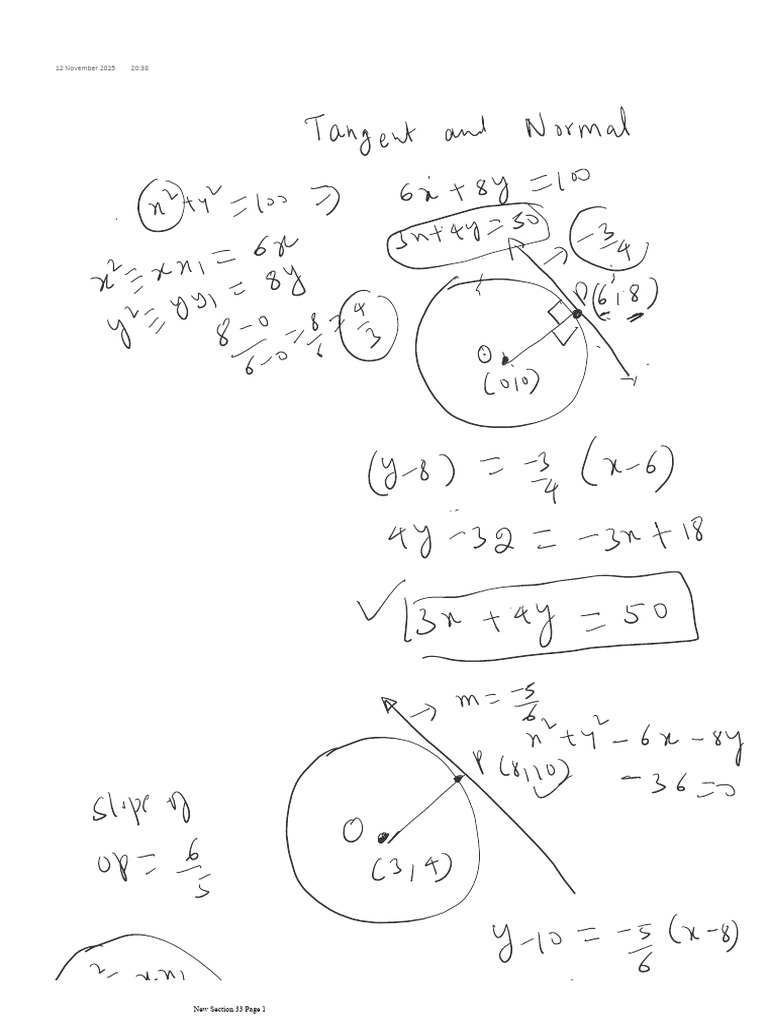 12 November 2025 20:38
Tangent and Normal
x² + y² = 100 ⇒ 6x + 8y = 100
3x + 4y = 50
x² ≡ xx₁ = 6x
y² ≡ yy₁ = 8y
8-0/6-0 = 8/6 = 4/3
→ -3/4
P(6,8)
O
(0,0)
(y-8) = -3/4 (x-6)
4y - 32 = -3x + 18
✓ 3x + 4y = 50
→ m = -5/6
x² + y² - 6x - 8y
- 36 = 0
P (8,10)
O
(3,4)
Slope of
OP = 6/5
y - 10 = -5/6 (x-8)
New Section 33 Page 1